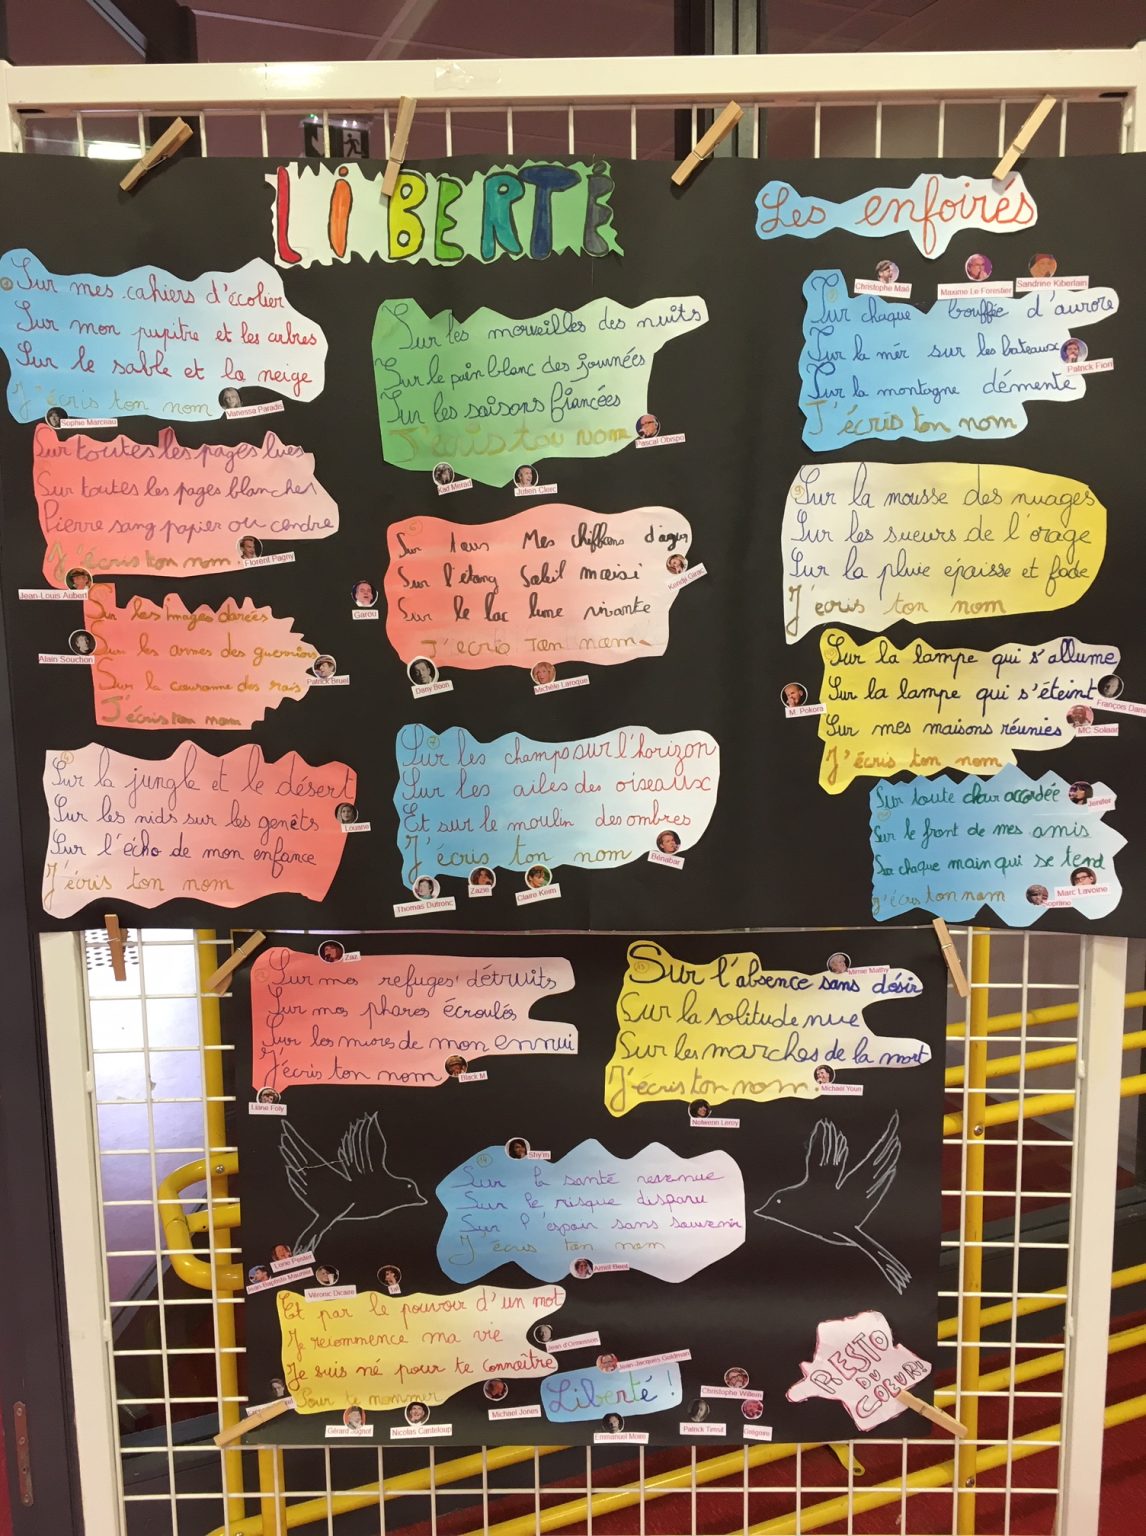 LIBERTÉ
Les enfoirés
Sur mes cahiers d'écolier
Sur mon pupitre et les arbres
Sur le sable et la neige
J'écris ton nom
Sophie Marceau
Vanessa Paradis
Sur toutes les pages lues
Sur toutes les pages blanches
Pierre sang papier ou cendre
J'écris ton nom.
Florent Pagny
Jean-Louis Aubert
Sur les images dorées
Sur les armes des guerriers
Sur la couronne des rois
J'écris ton nom
Alain Souchon
Patrick Bruel
4
Sur la jungle et le désert
Sur les nids sur les genêts
Sur l'écho de mon enfance
J'écris ton nom
Louane
Sur les merveilles des nuits
Sur le pain blanc des journées
Sur les saisons fiancées
J'écris ton nom
Pascal Obispo
Kad Merad
Julien Clerc
6
Sur tous Mes chiffons d'azur
Sur l'étang Soleil moisi
Sur le lac lune vivante
J'écris Ton nom
Garou
Kendji Girac
Dany Boon
Michèle Laroque
7
Sur les champs sur l'horizon
Sur les ailes des oiseaux
Et sur le moulin des ombres
J'écris ton nom
Bénabar
Thomas Dutronc
Zazie
Claire Keim
Christophe Maé
Maxime Le Forestier
Sandrine Kiberlain
Sur chaque bouffée d'aurore
Sur la mer sur les bateaux
Sur la montagne démente
J'écris ton nom
Patrick Fiori
9
Sur la mousse des nuages
Sur les sueurs de l'orage
Sur la pluie epaisse et fade
J'écris ton nom
Sur la lampe qui s'allume
Sur la lampe qui s'éteint
Sur mes maisons réunies
J'écris ton nom
M. Pokora
François
MC Solaar
Sur toute chair accordée
Sur le front de mes amis
Sur chaque main qui se tend
J'écris ton nom
Jenifer
Marc Lavoine
Soprano
Zaz
Sur mes refuges détruits
Sur mes phares écroulés
Sur les murs de mon ennui
J'écris ton nom
Black M
Liane Foly
13
Mimie Mathy
Sur l'absence sans désir
Sur la solitude nue
Sur les marches de la mort
J'écris ton nom.
Michaël Youn
Nolwenn Leroy
14
Shy'm
Sur la santé revenue
Sur le risque disparu
Sur l'espoir sans souvenir
J'écris ton nom
Amel Bent
Lorie Pester
Jean-Baptiste Maunier
Véronic Dicaire
Tal
Et par le pouvoir d'un mot
Je recommence ma vie
Je suis né pour te connaître
Pour te nommer
Jean d'Ormesson
Gérard Jugnot
Nicolas Canteloup
Michael Jones
Jean-Jacques Goldman
Liberté !
Emmanuel Moire
Christophe Willem
Patrick Timsit
Grégoire
RESTO
DU
COEUR!